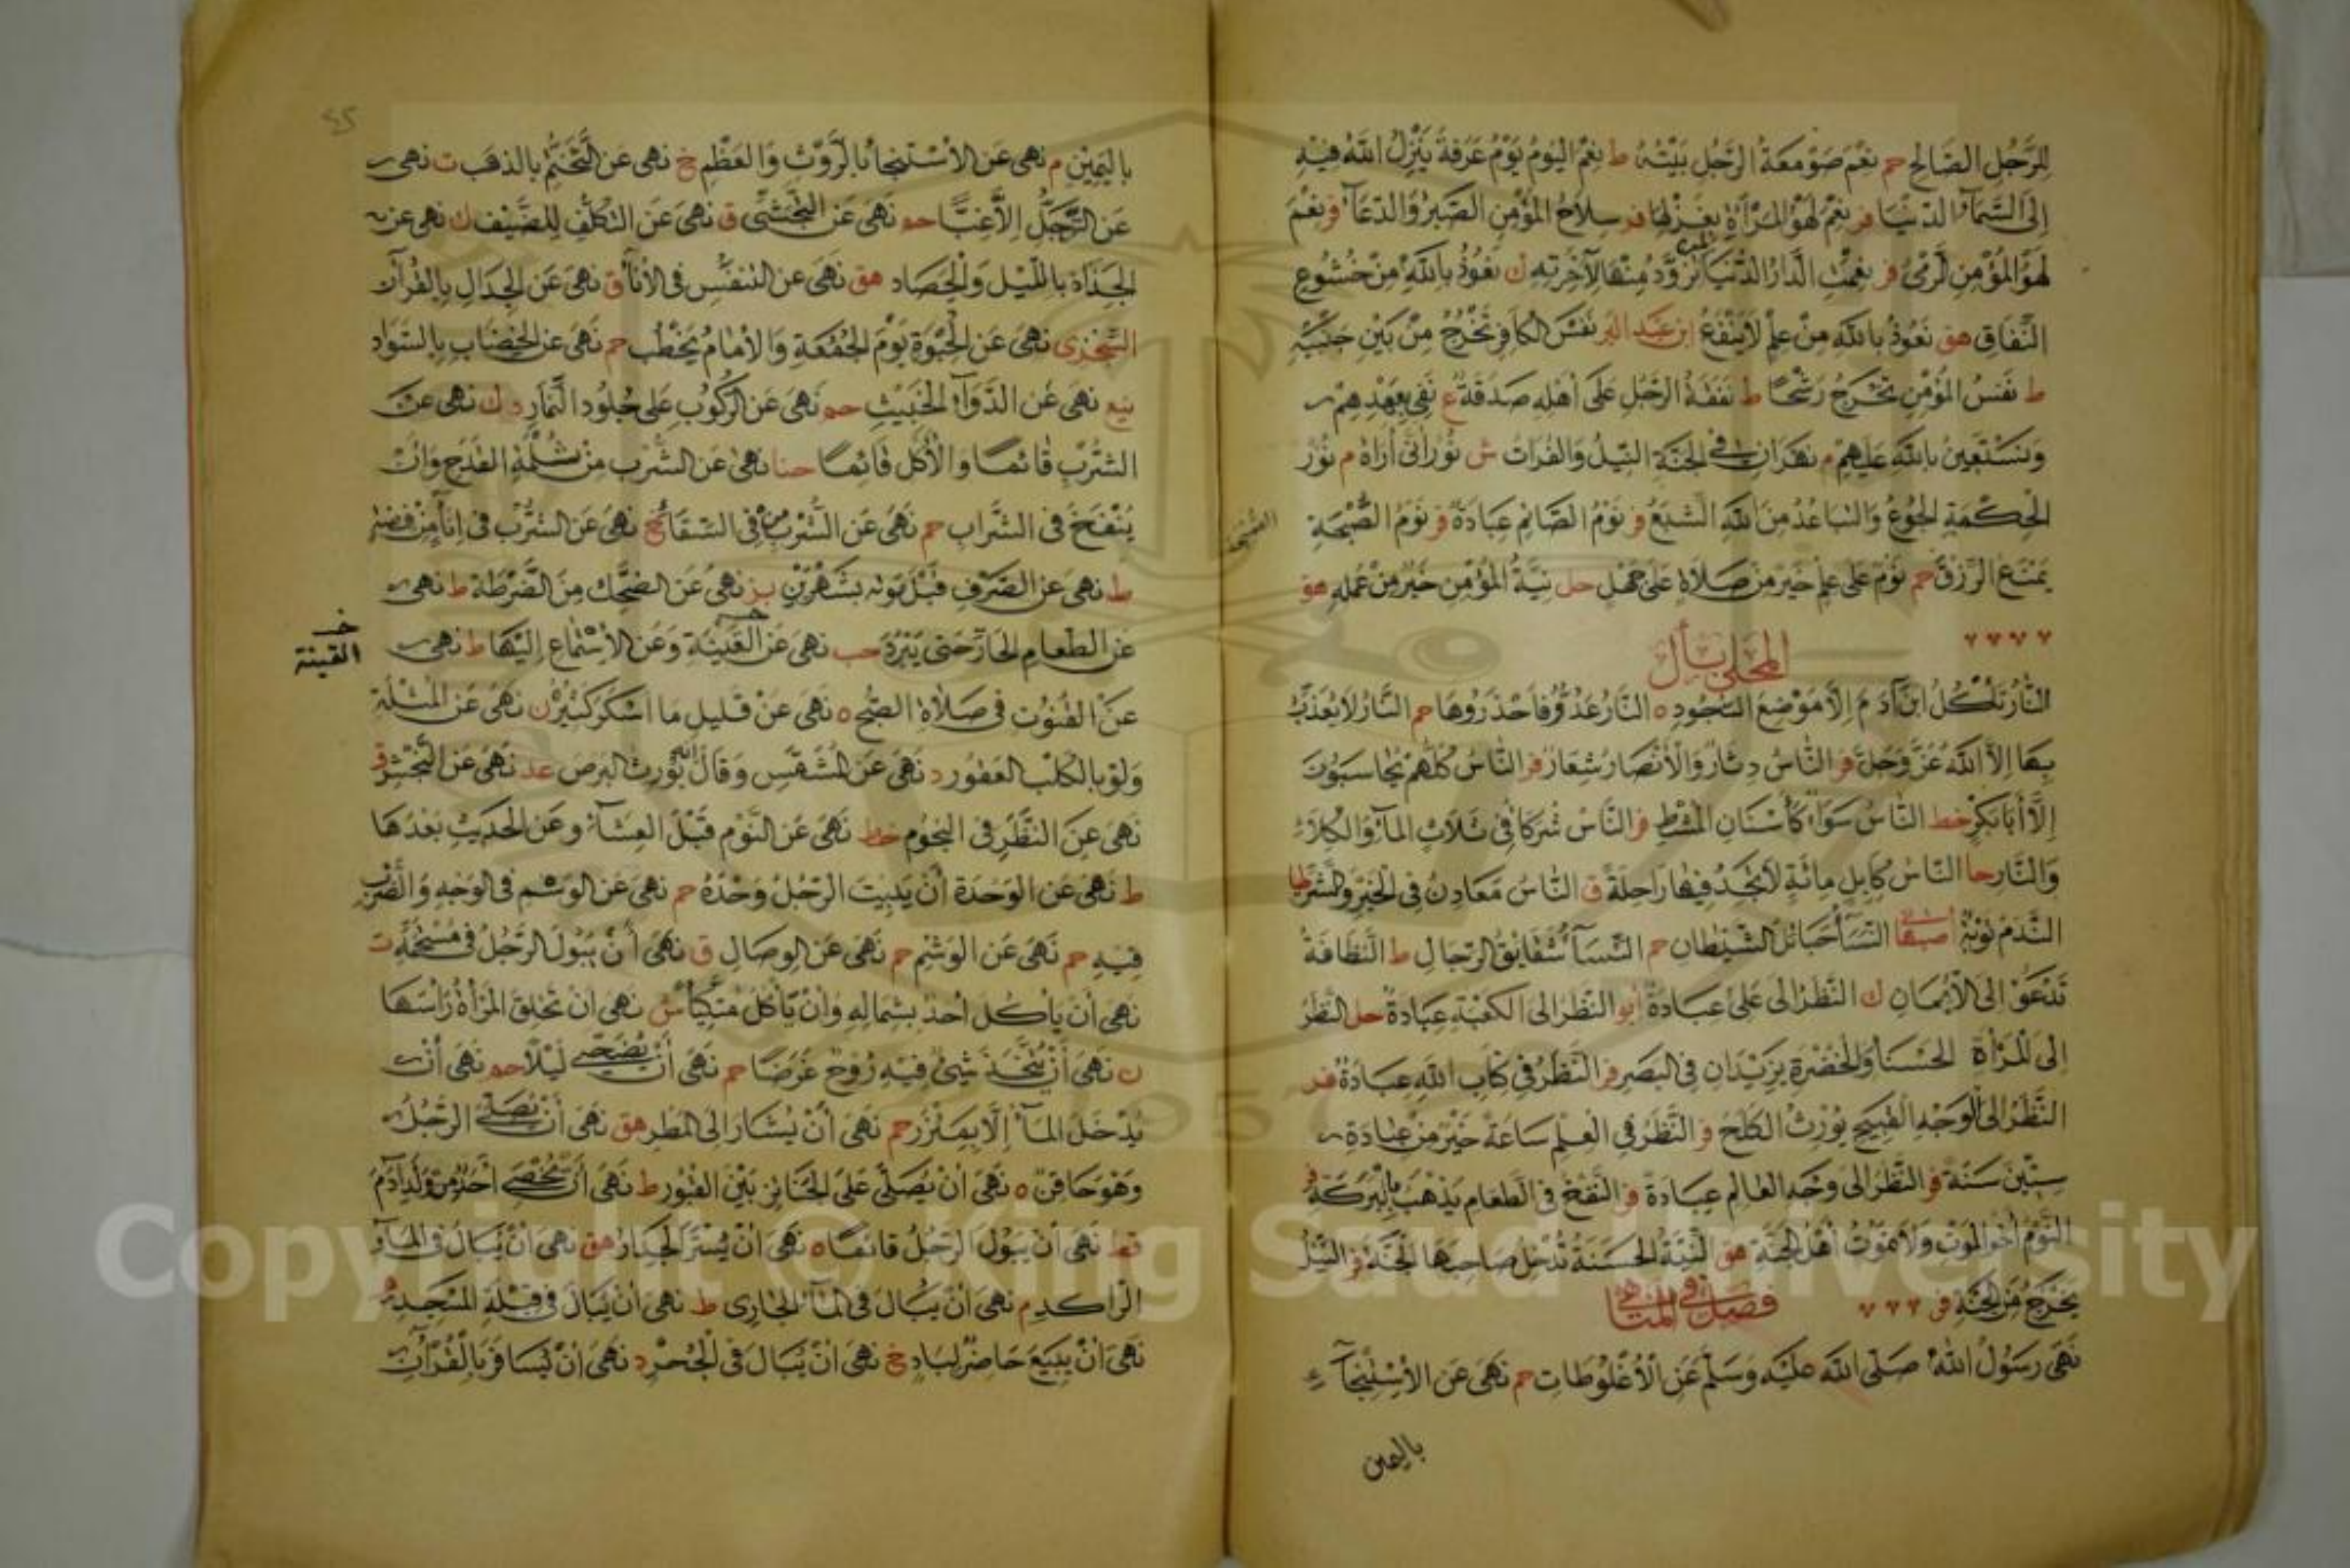 للرجل الصالح حم نعم صومعة الرجل بيته ط نعم اليوم يوم عرفة ينزل الله فيه
الى السماء الدنيا فر نعم لهو المرأة بغزلها فر سلاح المؤمن الصبر والدعاء فر نعم
لهو المؤمن الرمى فر نعمت الدار الدنيا لمن تزود منها لآخرته ك نعوذ بالله من خشوع
النفاق هق نعوذ بالله من علم لا ينفع ابن عبد البر نفس الكافر تخرج من بين جنبيه
ط نفس المؤمن تخرج رشحا ط نفقة الرجل على أهله صدقة ع نفى بعهدهم
ونستعين بالله عليهم م نهران في الجنة النيل والفرات ش نور انى أراه م نور
الحكمة الجوع والتباعد من الله الشبع فر نوم الصائم عبادة فر نوم الصبحة
يمنع الرزق حم نوم على علم خير من صلاة على جهل حل نية المؤمن خير من عمله هق
المحلى بأل
النار تأكل ابن آدم إلا موضع السجود ه النار عدو فاحذروها حم النار لا يعذب
بها إلا الله عز وجل فر الناس دثار والأنصار شعار فر الناس كلهم يحاسبون
إلا أبا بكر خط الناس سواء كأسنان المشط فر الناس شركا في ثلاث الماء والكلاء
والنار حا الناس كابل مائة لا تجد فيها راحلة ق الناس معادن في الخير والشر
الندم توبة النساء حبائل الشيطان حم النساء شقايق الرجال ط النظافة
تدعو الى الايمان ك النظر الى على عبادة أبو النظر الى الكعبة عبادة حل النظر
إلى المرأة الحسناء والخضرة يزيدان في البصر فر النظر في كتاب الله عبادة فر
النظر الى الوجه القبيح يورث الكلح فر النظر في العلم ساعة خير من عبادة
ستين سنة فر النظر الى وجه العالم عبادة فر النفخ في الطعام يذهب بالبركة فر
النوم أخو الموت ولا يموت أهل الجنة هق النية الحسنة تدخل صاحبها الجنة فر النيل
يخرج من الجنة فر
فصل في المناهى
نهى رسول الله صلى الله عليه وسلم عن الأغلوطات حم نهى عن الاستنجاء
باليمين
باليمين م نهى عن الاستنجاء بالروث والعظم خ نهى عن التختم بالذهب ت نهى
عن الترجل إلا غبا حم نهى عن ق نهى عن التكلف للضيف ك نهى عن
الجذاذ بالليل والحصاد هق نهى عن التنفس فى الاناء ق نهى عن الجدال بالقرآن
السجزى نهى عن الحبوة يوم الجمعة والامام يخطب حم نهى عن الخضاب بالسواد
نهى عن الدواء الخبيث حم نهى عن الركوب على جلود النمار د ك نهى عن
الشرب قائما والأكل قائما نهى عن الشرب من ثلمة القدح وان
ينفخ فى الشراب حم نهى عن الشرب من في السقاء خ نهى عن الشرب فى اناء من فضة
ط نهى عن الصرف قبل موته بشهرين بز نهى عن الضحك من الضرطة ط نهى
عن الطعام الحار حتى يبرد هب نهى عن القينة وعن الاستماع إليها ط نهى
خـ القينة
عن القنوت فى صلاة الصبح ه نهى عن قليل ما اسكر كثيره ن نهى عن المثلة
ولو بالكلب العقور د نهى عن المشمس وقال انه يورث البرص عد نهى عن النجش ق
نهى عن النظر فى النجوم خط نهى عن النوم قبل العشاء وعن الحديث بعدها
ط نهى عن الوحدة أن يبيت الرجل وحده حم نهى عن الوشم في الوجه والضرب
فيه حم نهى عن الوشم حم نهى عن الوصال ق نهى أن يبول الرجل فى مستحمه ت
نهى أن يأكل أحد بشماله وان يأكل متكيا ش نهى ان تحلق المرأة رأسها
ن نهى أن يتخذ شئ فيه روح غرضا حم نهى أن يضحى ليلا حم نهى أن
يدخل الماء إلا بمئزر حم نهى أن يشار الى المطر هق نهى أن يصلى الرجل
وهو حاقن ه نهى ان يصلى على الجنائز بين القبور ط نهى أن يخصى أحد من ولد آدم
نهى أن يبول الرجل قائما ه نهى ان يستر الجدار هق نهى ان يبال فى الماء
الراكد م نهى ان يبال في الماء الجارى ط نهى ان يبال في قبلة المسجد
نهى ان يبيع حاضر لباد خ نهى ان يبال فى الجحر د نهى ان يسافر بالقرآن
Copyright © King Saud University
1957